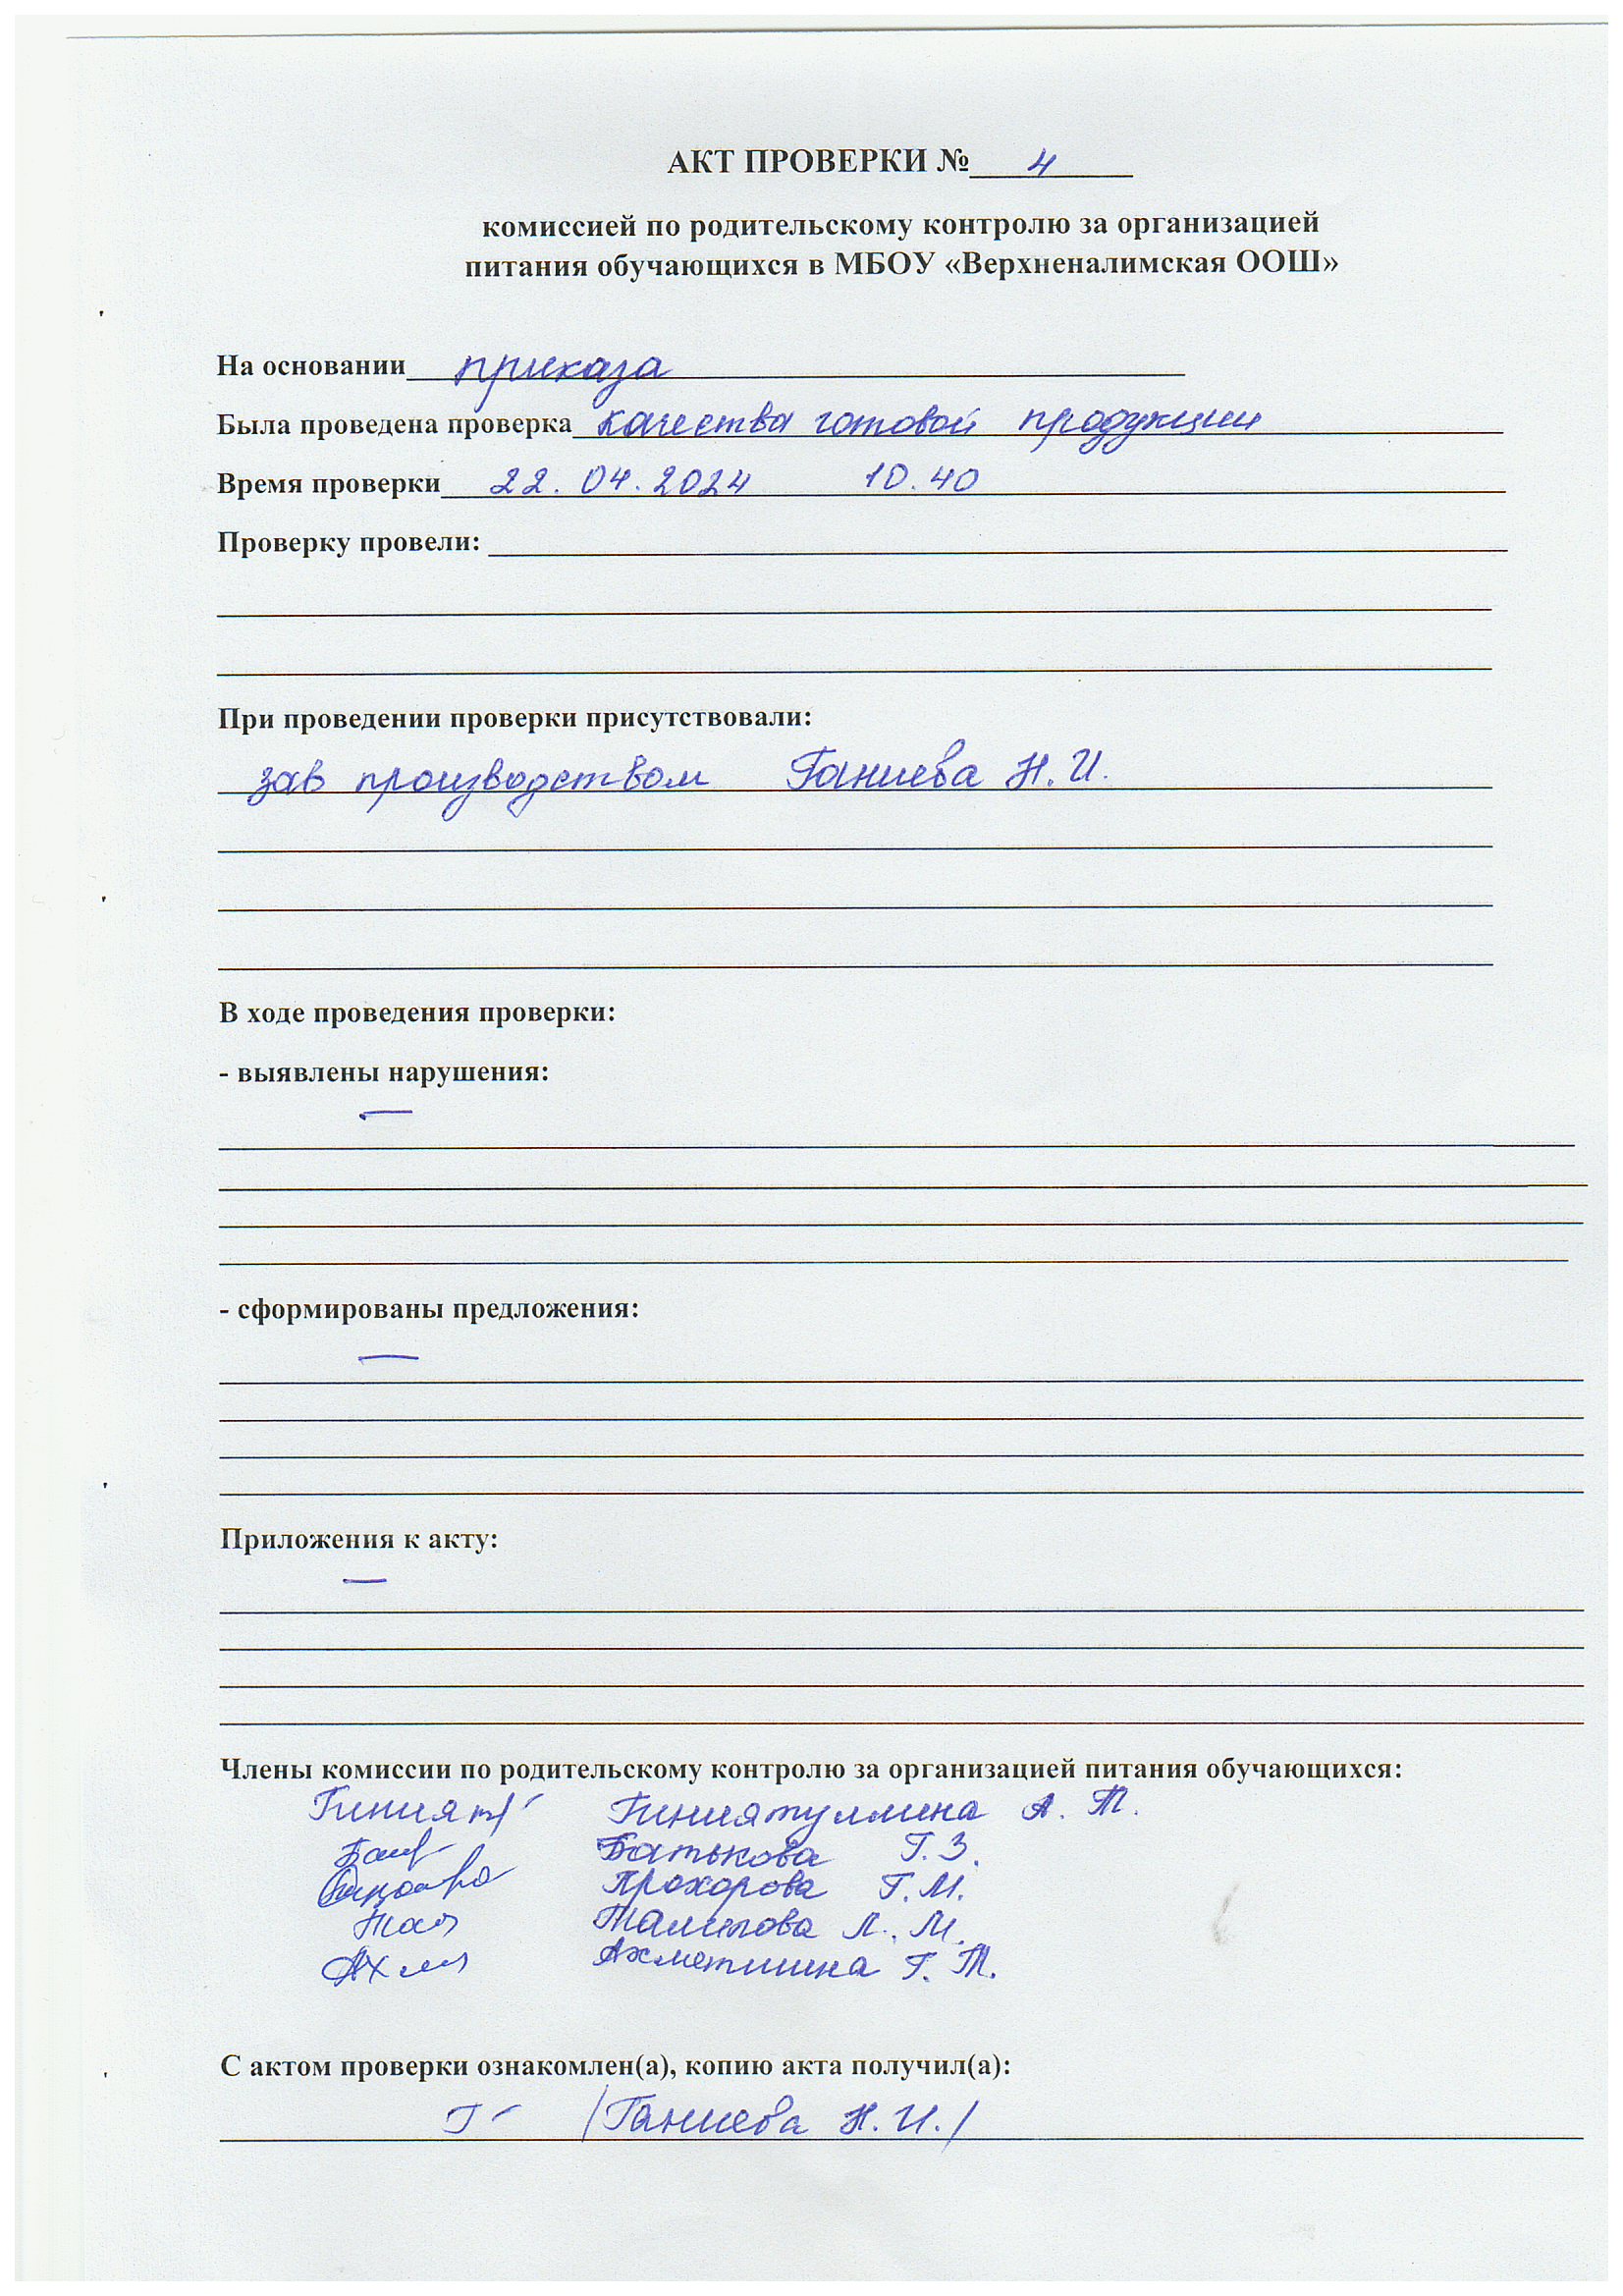 АКТ ПРОВЕРКИ № 4
комиссией по родительскому контролю за организацией
питания обучающихся в МБОУ «Верхненалимская ООШ»
На основании приказа
Была проведена проверка качества готовой продукции
Время проверки 22.04.2024 10.40
Проверку провели:
При проведении проверки присутствовали:
зав производством Ганиева Н.И.
В ходе проведения проверки:
- выявлены нарушения:
—
- сформированы предложения:
—
Приложения к акту:
—
Члены комиссии по родительскому контролю за организацией питания обучающихся:
Гиниятуллина А. Т.
Батькова Г.З.
Прохорова Г.М.
Талипова Л. М.
Ахметшина Г. Т.
С актом проверки ознакомлен(а), копию акта получил(а):
/Ганиева Н.И./